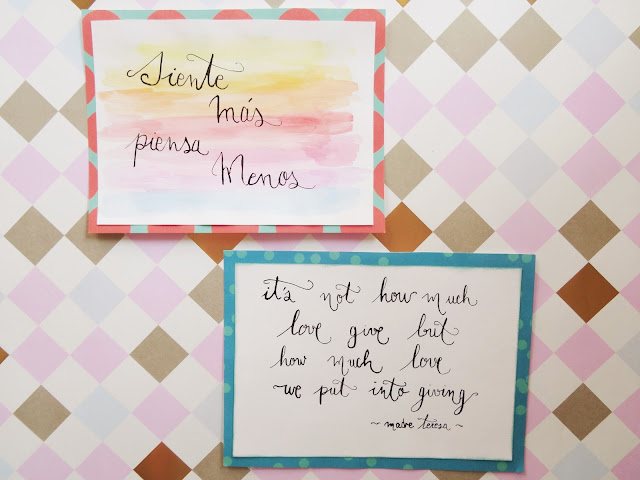 Siente
Más
piensa
Menos
it's not how much
love give but
how much love
we put into giving
~ madre teresa ~